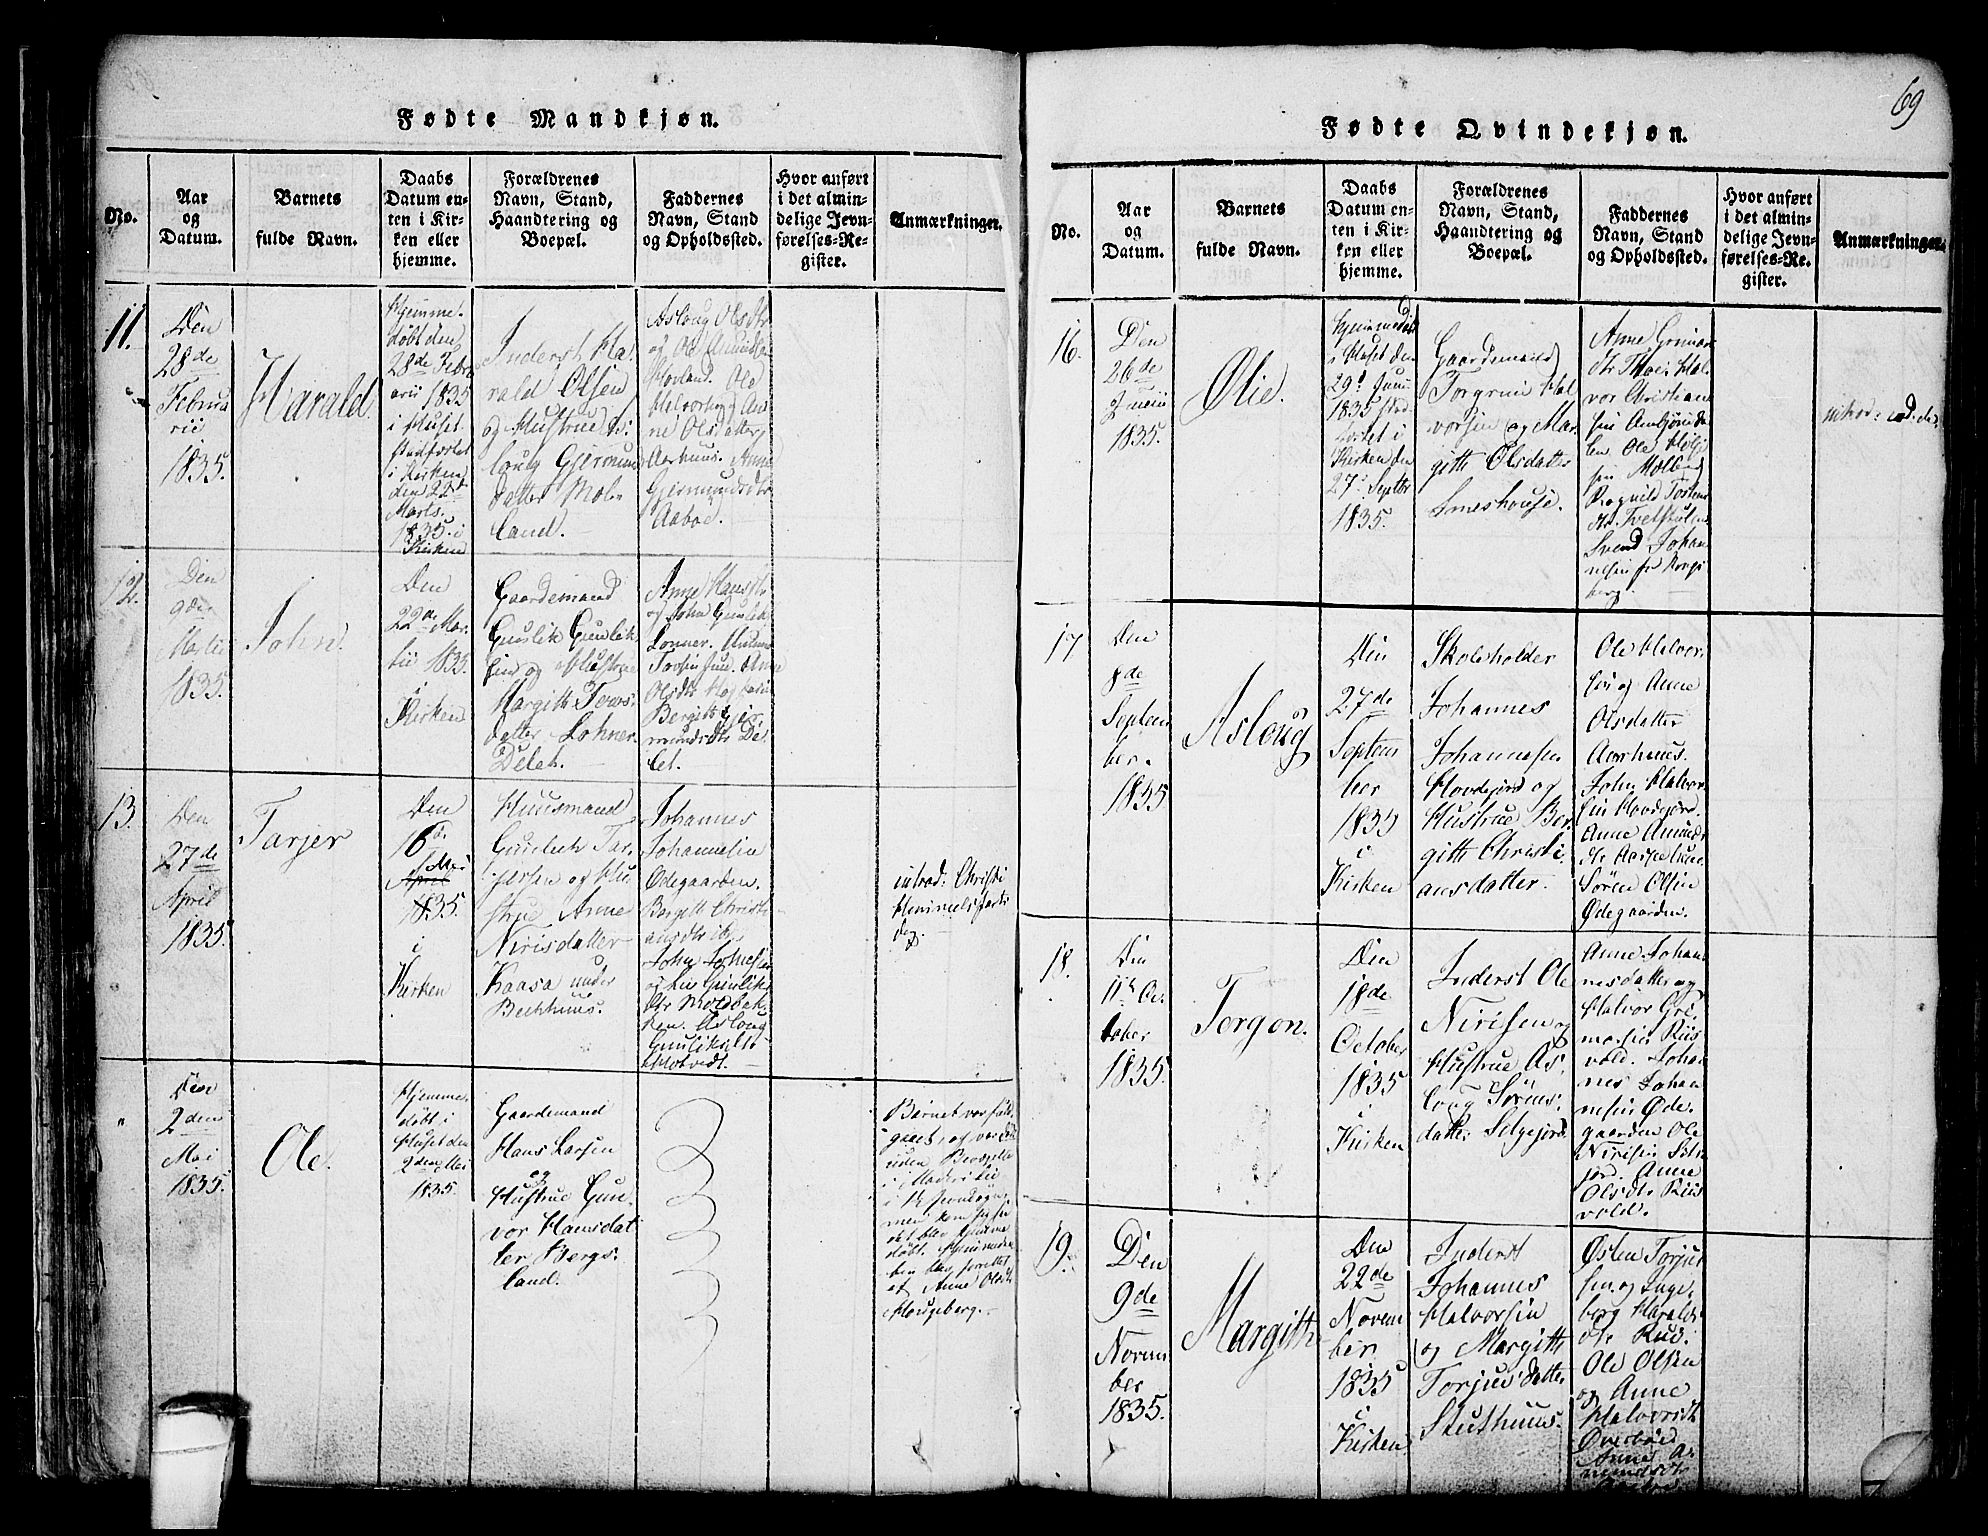 Fødte Mandkjøn.
No.
Aar
og
Datum.
Barnets
fulde Navn.
Daabs
Datum en-
ten i Kir-
ken eller
hjemme.
Forældrenes
Navn, Stand,
Haandtering og
Boepæl.
Faddernes
Navn, Stand
og Opholdssted.
Hvor anført
i det almin-
delige Jevn-
førelses-Re-
gister.
Anmærkninger.
11.
Den
28de
Februa
rii
1835.
Harald.
Hjemme-
døbt den
28de Febr
arii 1835
i Huset
stadfæstet
i Kirken
den 22d
Marts
1835 i
Kirken
Inderst Ha-
rald Olsen
og Hustrue As-
laug Gjermunds
datter Mol-
land.
Asloug Olsdtr
og Ole Amundsen
Hovland. Ole
Halvorsen An-
ne Olsdatter
Aarhuus. Anne
Gjermundsdtr
Aaboe.
12.
Den
9de
Martii
1835.
John.
Den
22de Mar-
tii 1835.
i
Kirken
Gaardemand
Gunlik Gunlik
sen og Hustrue
Margith Tovs-
datter Lohner
Delet.
Anne Hansdtr
og John Gunlik
Lonner.
Olsdtr
Bergitte Gjer-
mundsdtr De-
let.
13.
Den
27de
April
1835.
Tarjer
Den
16de
April
Mai
1835.
i
Kirken
Huusmand
Gunleik Tar-
jersen og Hu-
strue Anne
Nirisdatter
Kaasa under
Bechhuus.
Johannes
Johannesen
Ødegaarden.
Bergitt Christi
ansdtr ibd.
John Johnsen
og Liv Gunliks
dtr Moldbek-
ken. Asloug
Gunliksdtr
Hotvedt.
introd: Christi
Himmelfarts
dag.
"
Den
2den
Mai
1835.
Ole.
Hjemme-
døbt i
Huset den
2den Mai
1835.
Gaardemand
Hans Larsen
og
Hustrue Gun-
vor Hansdat
ter Bergs-
land.
Barnet var fuld-
gaaet, og var død
uden Bevægelse
i Moders Liv
det blev hjemme
døbt.
ben blev forrettet
af Anne Olsdtr
Haugeberg.
69
Fødte Qvindekjøn.
No.
Aar
og
Datum.
Barnets
fulde Navn.
Daabs
Datum en-
ten i Kir-
ken eller
hjemme.
Forældrenes
Navn, Stand,
Haandtering og
Boepæl.
Faddernes
Navn, Stand
og Opholdssted.
Hvor anført
i det almin-
delige Jevn-
førelses-Re-
gister.
Anmærkninger.
16.
Den
26de
Junii
1835.
Ølie.
Hjemmedøbt
i Huset den
29d Junii
1835 stad-
fæstet i
Kirken den
27d Septbr
1835.
Gaardemand
Torgrim Hal
vorsen og Mar-
gith Olsdatter
Smeshouse.
Anne Grimar
dtr Moe. Hal-
vor Christian
sen Amlj
len. Ole Helje
sen Molland
Ragnild Torstens
dtr. Tvetstulen
Svend Johan-
nesen fr Konge
berg.
introd: ed: die.
17
Den
8de
Septem
ber.
1835
Asloug
Den
27de
Septem
ber
1835
i
Kirken
Skoleholder
Johannes
Johannesen
Hovdejord og
Hustrue Ber-
gitte Christi-
ansdatter.
Ole Halvor-
sen og Anne
Olsdatter
Aarhuus.
John Halvor-
sen Hovdejord
Anne Amunds
dtr Aaspelund
Søren Olsen
Ødegaarden.
18.
Den
11te Oc-
tober
1835.
Torgon.
Den
18de
October
1835
i
Kirken
Inderst Ole
Nirisen og
Hustrue As-
loug Sørens-
datter Selgejord
Anne Johan-
nesdatter og
Halvor Gre-
marsen Riis
vold. Johan
nes Johan
nesen Øde-
gaarden Ole
Nirisen Sel-
jord. Anne
Olsdtr Riis
vold.
19.
Den
9de
Novem
ber
1835.
Margith
Den
22de
Novem
ber
1835
i
Kirken
Inderst
Johannes
Halvorsen
og Margith
Torjusdatter
Skuthuus.
Østen Torjus
sen og Inge-
borg Haralds
dtr Rud.
Ole Olsen
og Anne
Halvorsdtr
Øverbøe
Anne A-
mundsdtr